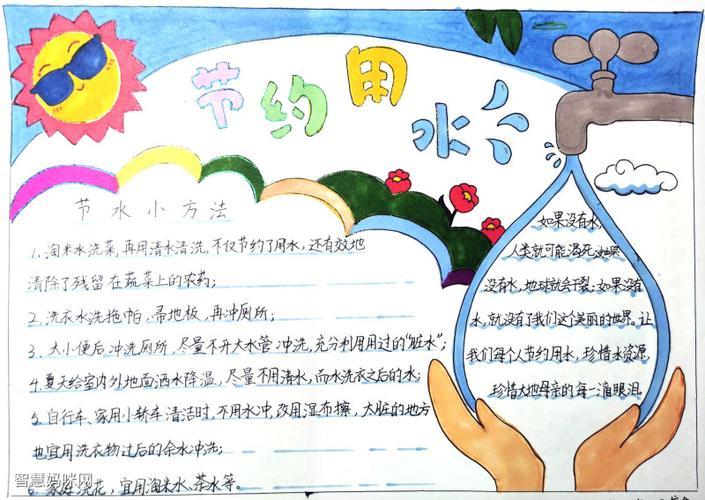 节约用水
节水小方法
1. 淘米水洗菜,再用清水清洗,不仅节约了用水,还有效地
清除了残留在蔬菜上的农药;
2. 洗衣水洗拖帕、帚地板,再冲厕所;
3. 大小便后冲洗厕所,尽量不开大水管冲洗,充分利用用过的“脏水”;
4. 夏天给室内外地面洒水降温,尽量不用清水,而水洗衣之后的水;
5. 自行车、家用小轿车清洁时,不用水冲,改用湿布擦,大脏的地方
也宜用洗衣物过后的余水冲洗;
家庭浇花,宜用淘米水、茶水等。
如果没有水,
人类就可能渴死,如果
没有水,地球就会干裂;如果没有
水,就没有了我们这个美丽的世界。让
我们每个人节约用水,珍惜水资源,
珍惜大地母亲的每一滴眼泪。
智慧妈咪网